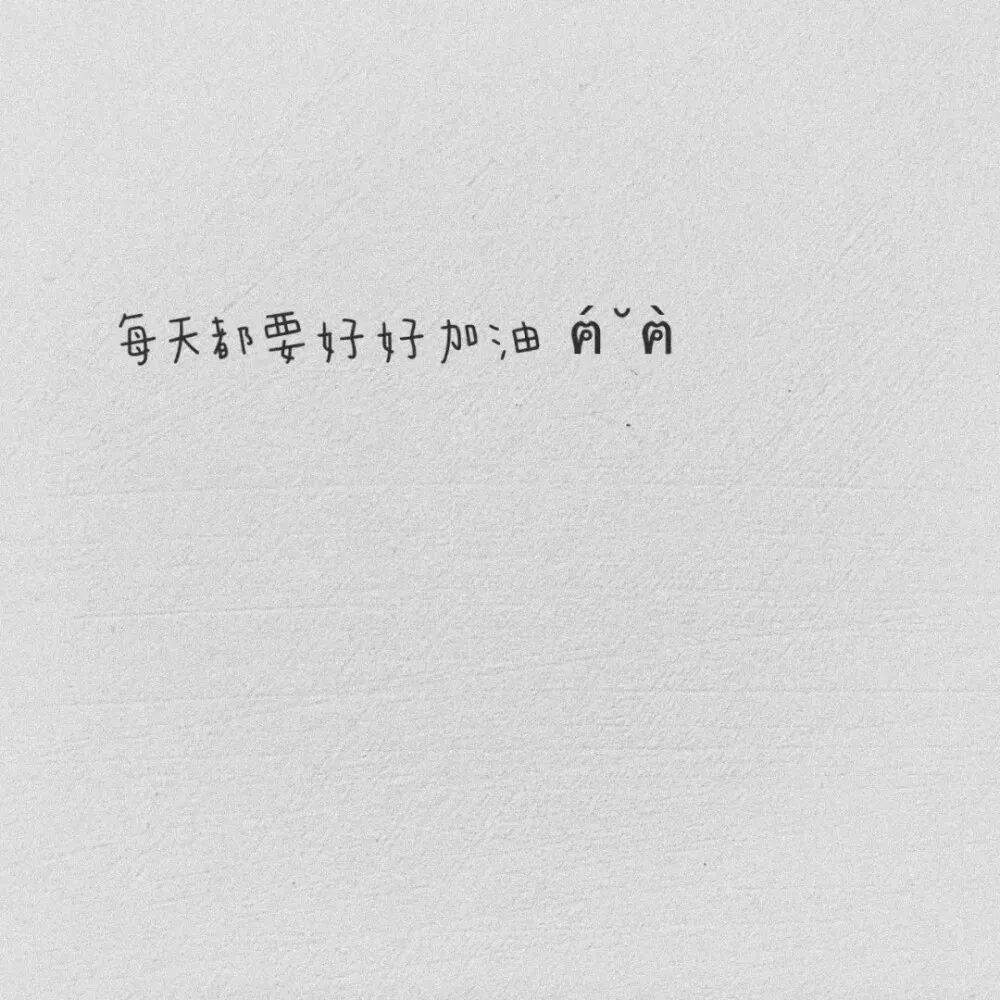 每天都要好好加油 ฅ́˘ฅ̀